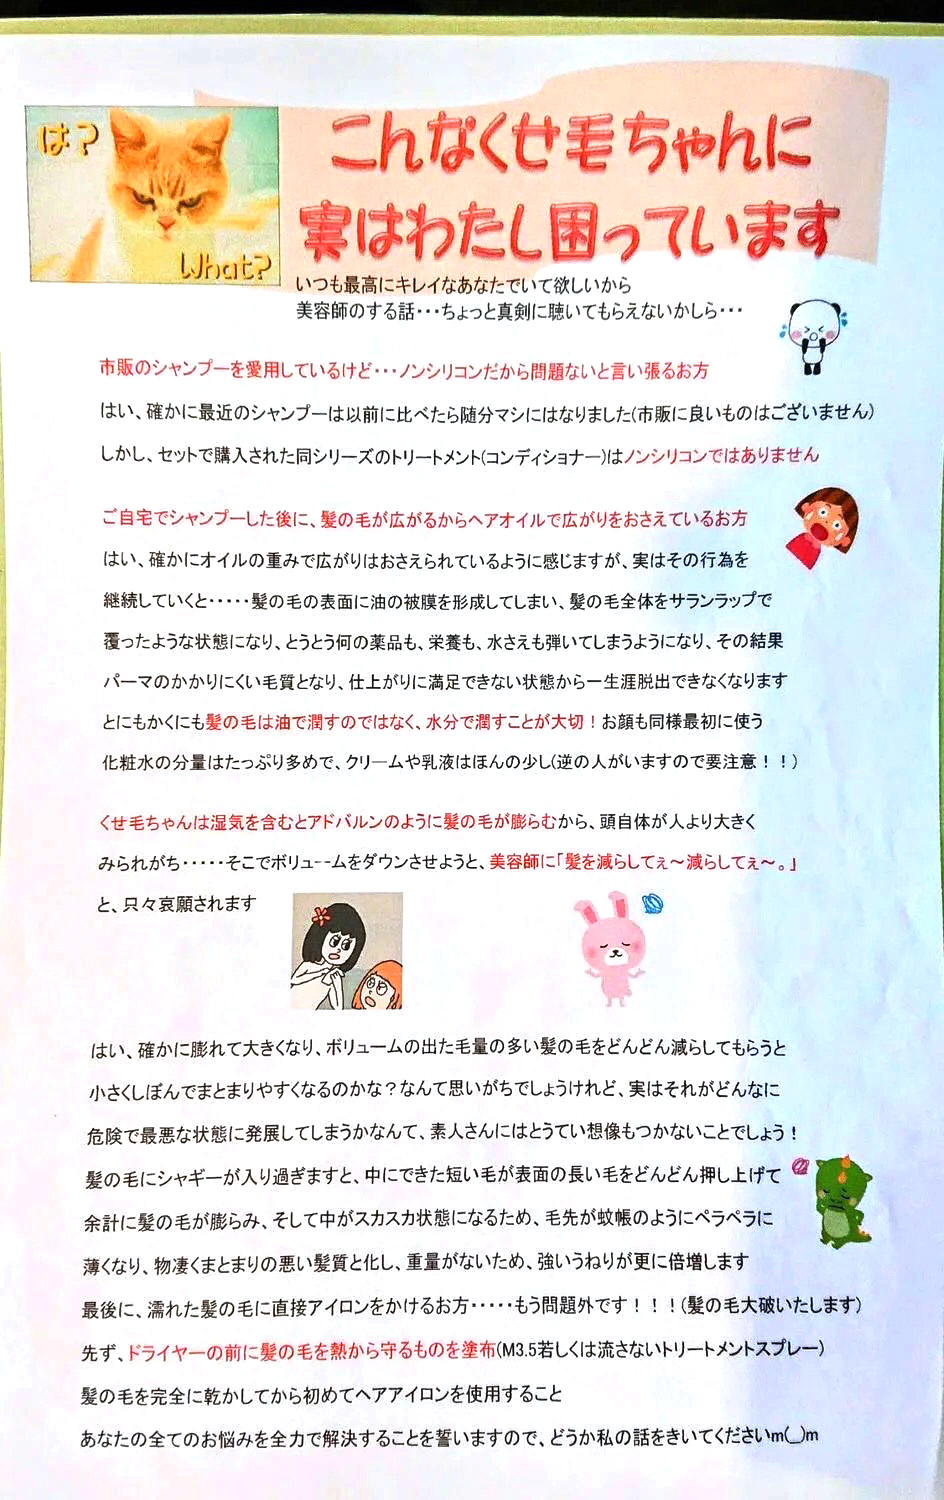 は？
What?
こんなくせ毛ちゃんに
実はわたし困っています
いつも最高にキレイなあなたでいて欲しいから
美容師のする話・・・ちょっと真剣に聴いてもらえないかしら・・・
市販のシャンプーを愛用しているけど・・・ノンシリコンだから問題ないと言い張るお方
はい、確かに最近のシャンプーは以前に比べたら随分マシにはなりました(市販に良いものはございません)
しかし、セットで購入された同シリーズのトリートメント(コンディショナー)はノンシリコンではありません
ご自宅でシャンプーした後に、髪の毛が広がるからヘアオイルで広がりをおさえているお方
はい、確かにオイルの重みで広がりはおさえられているように感じますが、実はその行為を
継続していくと・・・・・髪の毛の表面に油の被膜を形成してしまい、髪の毛全体をサランラップで
覆ったような状態になり、とうとう何の薬品も、栄養も、水さえも弾いてしまうようになり、その結果
パーマのかかりにくい毛質となり、仕上がりに満足できない状態から一生涯脱出できなくなります
とにもかくにも髪の毛は油で潤すのではなく、水分で潤すことが大切！お顔も同様最初に使う
化粧水の分量はたっぷり多めで、クリームや乳液はほんの少し(逆の人がいますので要注意！！)
くせ毛ちゃんは湿気を含むとアドバルンのように髪の毛が膨らむから、頭自体が人より大きく
みられがち・・・・・そこでボリュ－－ムをダウンさせようと、美容師に「髪を減らしてぇ～減らしてぇ～。」
と、只々哀願されます
はい、確かに膨れて大きくなり、ボリュームの出た毛量の多い髪の毛をどんどん減らしてもらうと
小さくしぼんでまとまりやすくなるのかな？なんて思いがちでしょうけれど、実はそれがどんなに
危険で最悪な状態に発展してしまうかなんて、素人さんにはとうてい想像もつかないことでしょう！
髪の毛にシャギーが入り過ぎますと、中にできた短い毛が表面の長い毛をどんどん押し上げて
余計に髪の毛が膨らみ、そして中がスカスカ状態になるため、毛先が蚊帳のようにペラペラに
薄くなり、物凄くまとまりの悪い髪質と化し、重量がないため、強いうねりが更に倍増します
最後に、濡れた髪の毛に直接アイロンをかけるお方・・・・・もう問題外です！！！(髪の毛大破いたします)
先ず、ドライヤーの前に髪の毛を熱から守るものを塗布(M3.5若しくは流さないトリートメントスプレー)
髪の毛を完全に乾かしてから初めてヘアアイロンを使用すること
あなたの全てのお悩みを全力で解決することを誓いますので、どうか私の話をきいてくださいm(__)m